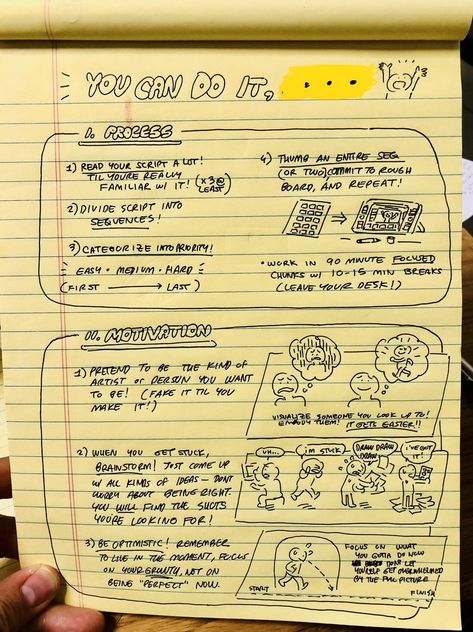 YOU CAN DO IT, ...
I. PROCESS
1) READ YOUR SCRIPT A LOT!
TIL YOU'RE REALLY
FAMILIAR W/ IT! (x3@
LEAST)
2) DIVIDE SCRIPT INTO
SEQUENCES!
3) CATEGORIZE INTO PRIORITY!
EASY • MEDIUM • HARD
(FIRST → LAST)
4) THUMB AN ENTIRE SEQ
(OR TWO) COMMIT TO ROUGH
BOARD, AND REPEAT!
• WORK IN 90 MINUTE FOCUSED
CHUNKS W/ 10-15 MIN BREAKS
(LEAVE YOUR DESK!)
II. MOTIVATION
1) PRETEND TO BE THE KIND OF
ARTIST OR PERSON YOU WANT
TO BE! (FAKE IT TIL YOU
MAKE IT!)
VISUALIZE SOMEONE YOU LOOK UP TO!
EMBODY THEM! IT GETS EASIER!!
2) WHEN YOU GET STUCK,
BRAINSTORM! JUST COME UP
W/ ALL KINDS OF IDEAS - DONT
WORRY ABOUT BEING RIGHT.
YOU WILL FIND THE SHOTS
YOU'RE LOOKING FOR!
UH...
I'M STUCK
DRAW DRAW
DRAW
I'VE GOT
IT!
3) BE OPTIMISTIC! REMEMBER
TO LIVE IN THE MOMENT, FOCUS
ON YOUR GROWTH, NOT ON
BEING "PERFECT" NOW.
START
FOCUS ON WHAT
YOU GOTTA DO NOW
DONT LET
YOURSELF GET OVERWHELMED
BY THE FULL PICTURE
FINISH